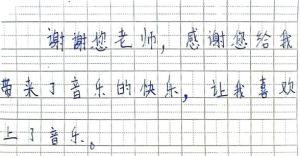 谢谢您老师，感谢您给我
带来了音乐的快乐，让我喜欢
上了音乐。